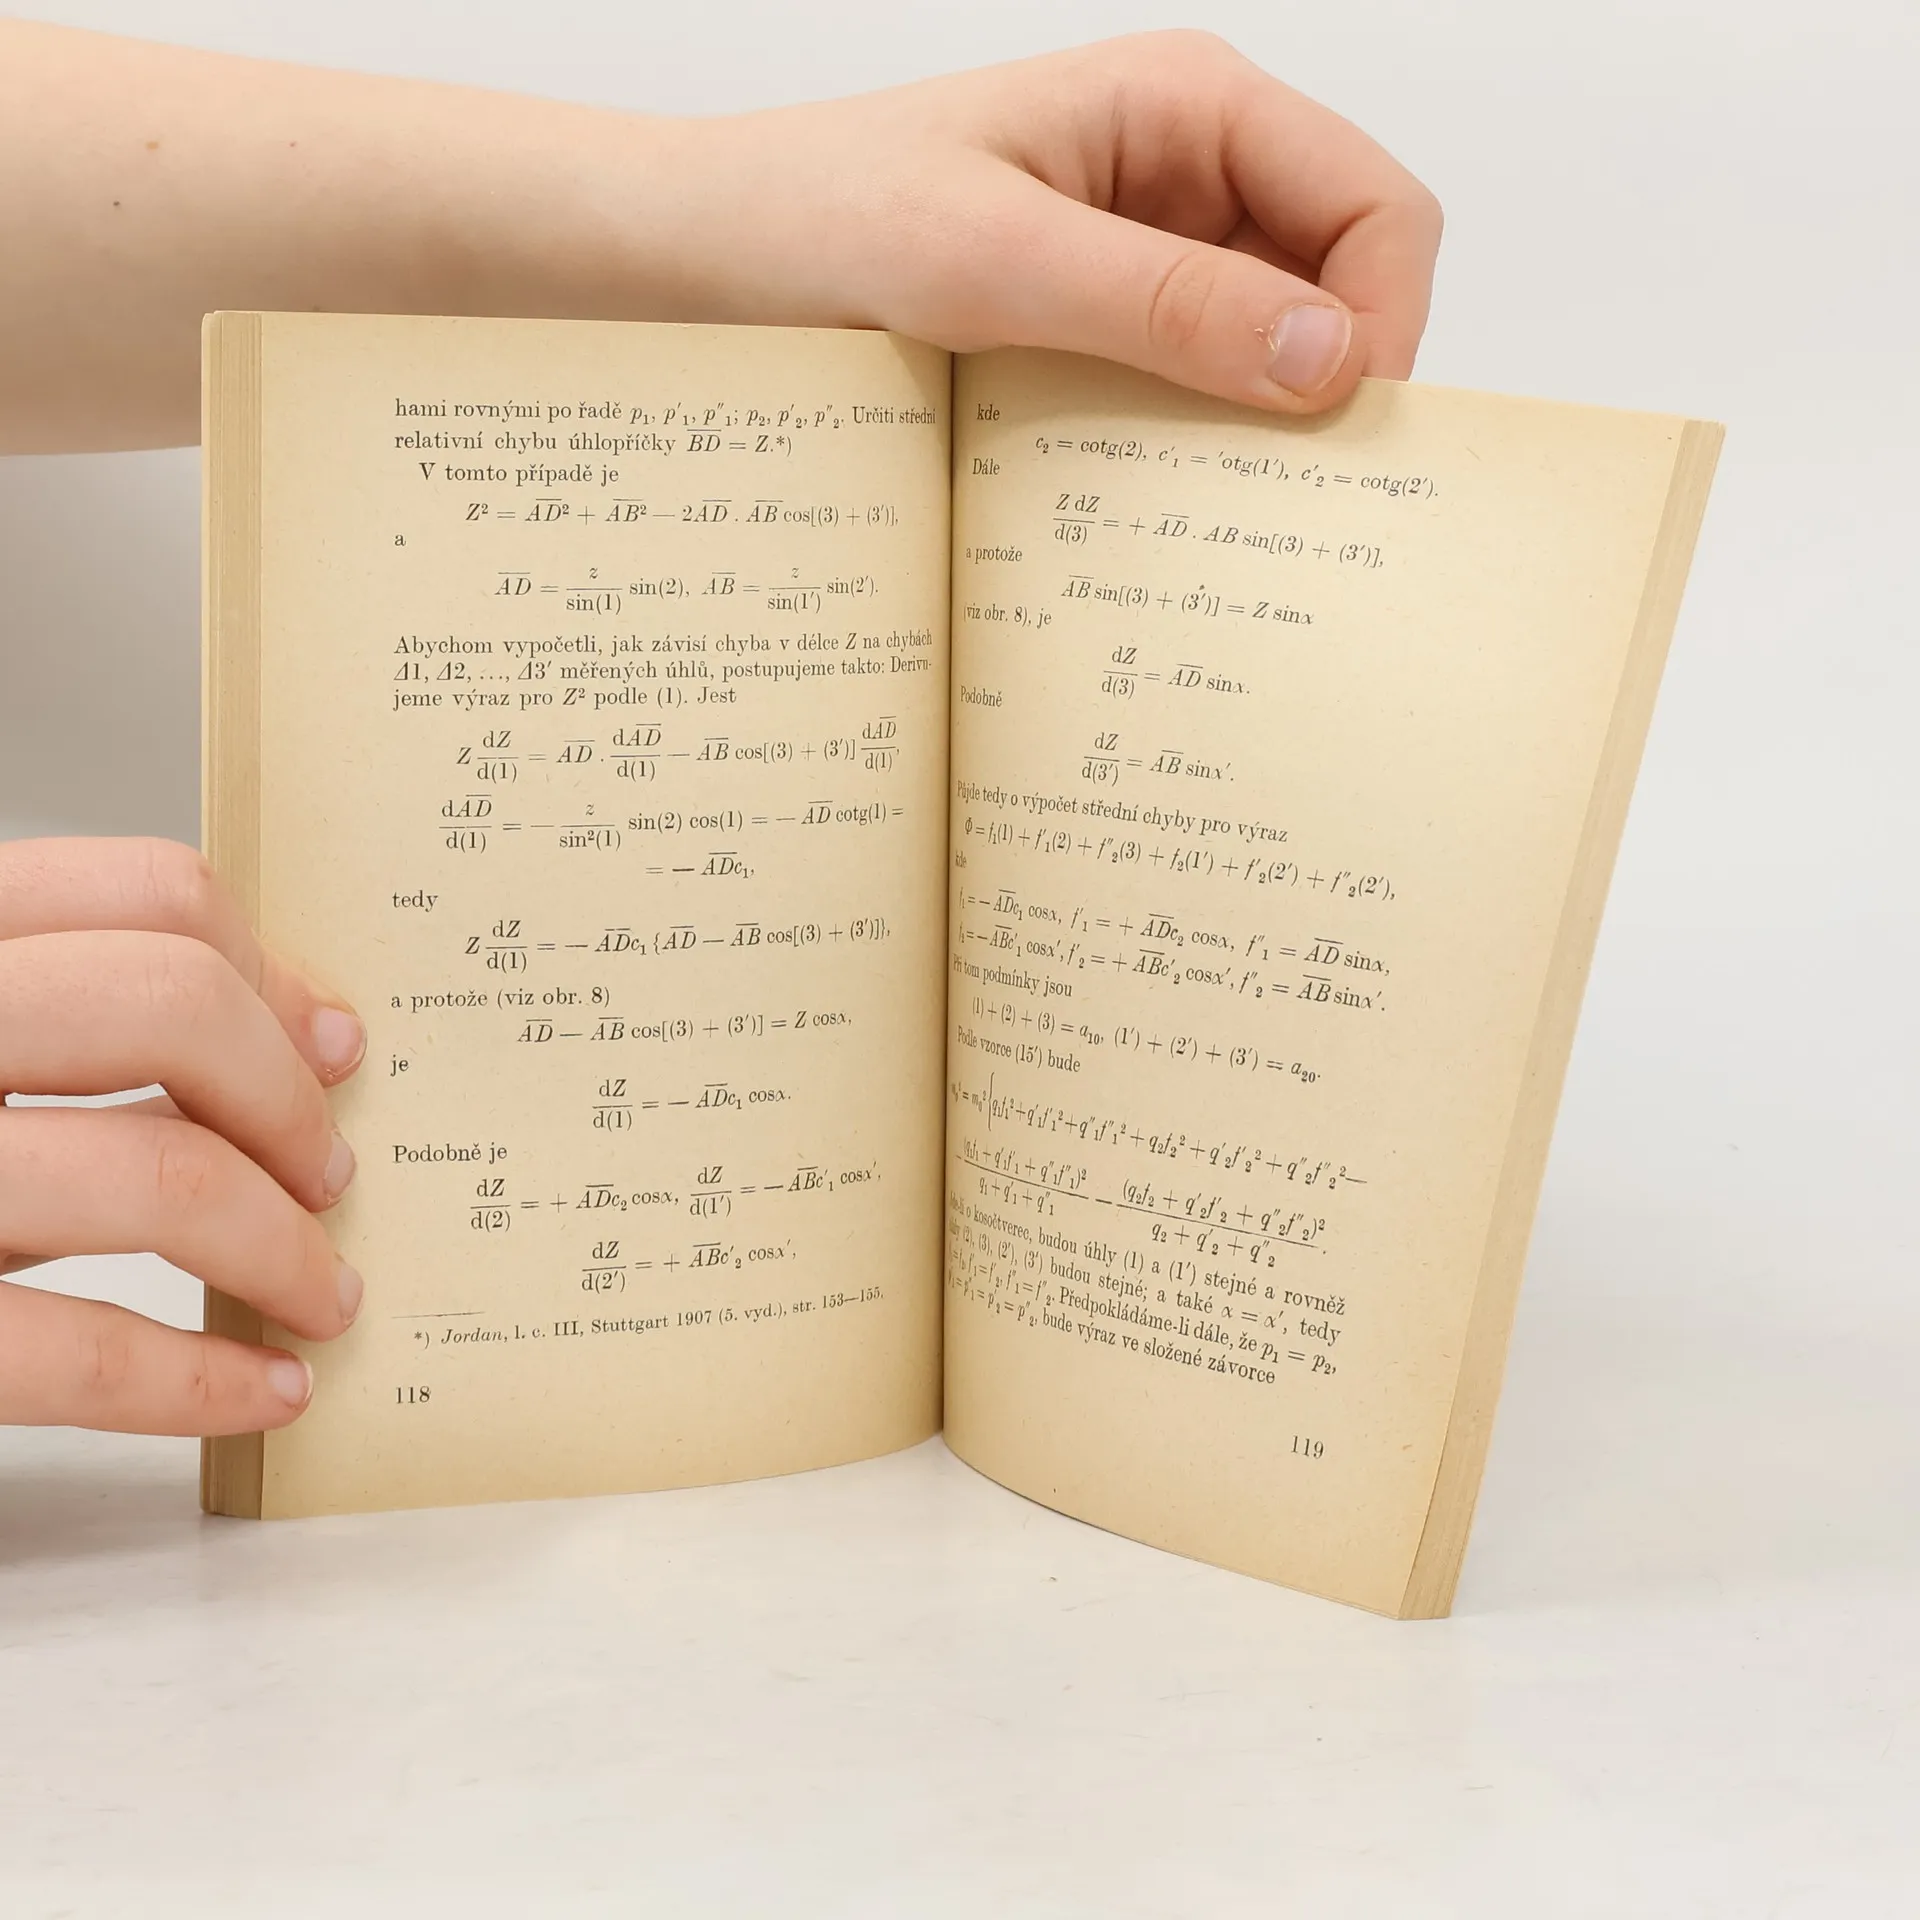 hami rovnými po řadě p₁, p′₁, p″₁; p₂, p′₂, p″₂. Určiti střední
relativní chybu úhlopříčky B̅D̅ = Z.*)
V tomto případě je
Z² = A̅D̅² + A̅B̅² — 2A̅D̅ . A̅B̅ cos[(3) + (3′)],
a
A̅D̅ = z/sin(1) sin(2), A̅B̅ = z/sin(1′) sin(2′).
Abychom vypočetli, jak závisí chyba v délce Z na chybách
Δ1, Δ2, ..., Δ3′ měřených úhlů, postupujeme takto: Derivu-
jeme výraz pro Z² podle (1). Jest
Z dZ/d(1) = A̅D̅ . dA̅D̅/d(1) — A̅B̅ cos[(3) + (3′)] dA̅D̅/d(1),
dA̅D̅/d(1) = — z/sin²(1) sin(2) cos(1) = — A̅D̅ cotg(1) =
= — A̅D̅c₁,
tedy
Z dZ/d(1) = — A̅D̅c₁ {A̅D̅ — A̅B̅ cos[(3) + (3′)]},
a protože (viz obr. 8)
A̅D̅ — A̅B̅ cos[(3) + (3′)] = Z cosα,
je
dZ/d(1) = — A̅D̅c₁ cosα.
Podobně je
dZ/d(2) = + A̅D̅c₂ cosα, dZ/d(1′) = — A̅B̅c′₁ cosα′,
dZ/d(2′) = + A̅B̅c′₂ cosα′,
*) Jordan, l. c. III, Stuttgart 1907 (5. vyd.), str. 153—155.
118
kde
c₂ = cotg(2), c′₁ = ′otg(1′), c′₂ = cotg(2′).
Dále
Z dZ/d(3) = + A̅D̅ . AB sin[(3) + (3′)],
a protože
A̅B̅ sin[(3) + (3′)] = Z sinα
(viz obr. 8), je
dZ/d(3) = A̅D̅ sinα.
Podobně
dZ/d(3′) = A̅B̅ sinα′.
Půjde tedy o výpočet střední chyby pro výraz
Φ = f₁(1) + f′₁(2) + f″₂(3) + f₂(1′) + f′₂(2′) + f″₂(2′),
kde
f₁ = — A̅D̅c₁ cosα, f′₁ = + A̅D̅c₂ cosα, f″₁ = A̅D̅ sinα,
f₂ = — A̅B̅c′₁ cosα′, f′₂ = + A̅B̅c′₂ cosα′, f″₂ = A̅B̅ sinα′.
Při tom podmínky jsou
(1) + (2) + (3) = a₁₀, (1′) + (2′) + (3′) = a₂₀.
Podle vzorce (15′) bude
= m₀² {q₁f₁² + q′₁f′₁² + q″₁f″₁² + q₂f₂² + q′₂f′₂² + q″₂f″₂² —
— (q₁f₁ + q′₁f′₁ + q″₁f″₁)²/(q₁ + q′₁ + q″₁) — (q₂f₂ + q′₂f′₂ + q″₂f″₂)²/(q₂ + q′₂ + q″₂).
o kosočtverec, budou úhly (1) a (1′) stejné a rovněž
(2), (3), (2′), (3′) budou stejné; a také α = α′, tedy
f₁ = f₂, f′₁ = f′₂, f″₁ = f″₂. Předpokládáme-li dále, že p₁ = p₂,
p′₁ = p″₁ = p′₂ = p″₂, bude výraz ve složené závorce
119